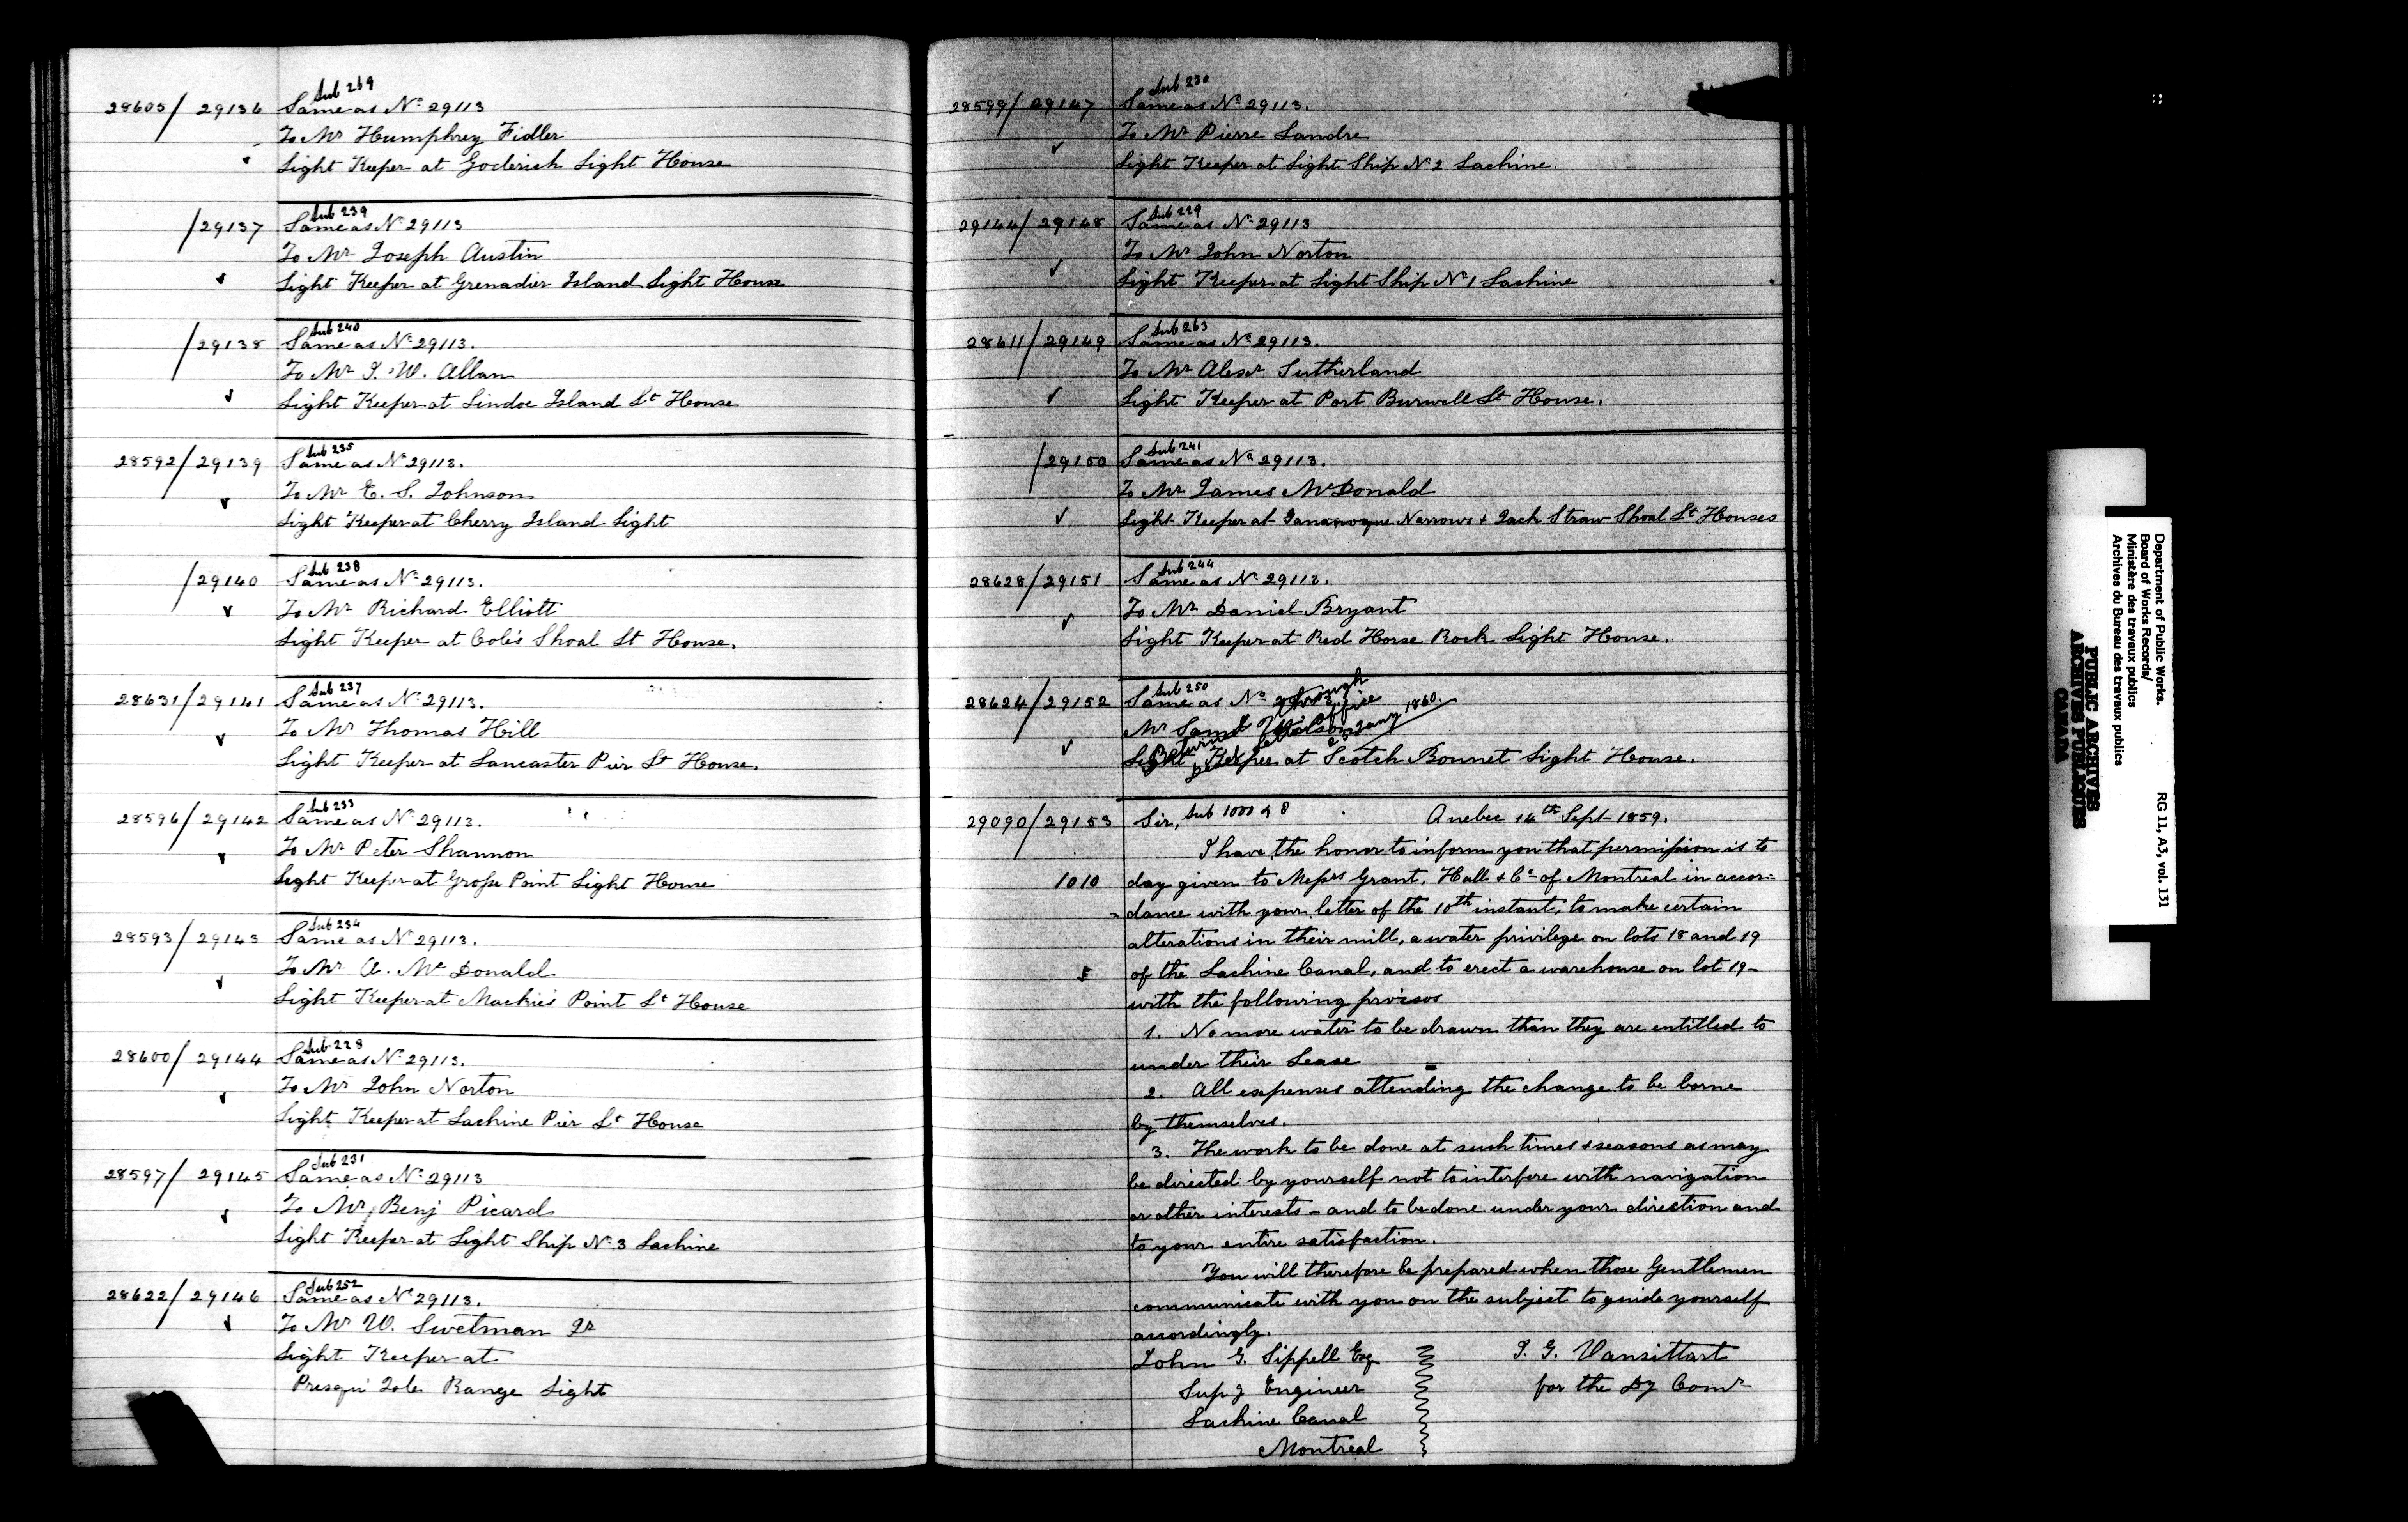 Sub 269
28605/29136 Same as No 29113
To Mr Humphrey Fidler
Light Keeper at Goderich Light House
Sub 239
/29137 Same as No 29113
To Mr Joseph Austin
Light Keeper at Grenadier Island Light House
Sub 240
/29138 Same as No 29113.
To Mr J. W. Allan
Light Keeper at Lindoe Island Lt House
Sub 235
28592/29139 Same as No 29113.
To Mr E. S. Johnson
Light Keeper at Cherry Island Light
Sub 238
/29140 Same as No 29113.
To Mr Richard Elliott
Light Keeper at Cole's Shoal Lt House.
Sub 237
28631/29141 Same as No 29113.
To Mr Thomas Hill
Light Keeper at Lancaster Pier Lt House.
Sub 233
28596/29142 Same as No 29113.
To Mr Peter Shannon
Light Keeper at Grosse Point Light House
Sub 234
28593/29143 Same as No 29113.
To Mr A. McDonald
Light Keeper at Mackie's Point Lt House
Sub 228
28600/29144 Same as No 29113.
To Mr John Norton
Light Keeper at Lachine Pier Lt House
Sub 231
28597/29145 Same as No 29113
To Mr Benj Picard
Light Keeper at Light Ship No 3 Lachine
Sub 252
28622/29146 Same as No 29113.
To Mr W. Swetman Jr
Light Keeper at
Presqu' Isle Range Light
Sub 230
28599/29147 Same as No 29113.
To Mr Pierre Landre
Light Keeper at Light Ship No 2 Lachine.
Sub 229
29144/29148 Same as No 29113
To Mr John Norton
Light Keeper at Light Ship No 1 Lachine
Sub 263
28611/29149 Same as No 29113.
To Mr Alexr Sutherland
Light Keeper at Port Burwell Lt House.
Sub 241
/29150 Same as No 29113.
To Mr James McDonald
Light Keeper at Gananoque Narrows & Jack Straw Shoal Lt Houses
Sub 244
28628/29151 Same as No 29113.
To Mr Daniel Bryant
Light Keeper at Red Horse Rock Light House.
Sub 250
28624/29152 Same as No 29113
Mr Saml Wilson
Light Keeper at Scotch Bonnet Light House.
Returned through
Letter Office
Jany 1860.
29090/29153 Sir, Sub 1000 Quebec 14th Sept 1859.
I have the honor to inform you that permission is to
1010 day given to Messrs Grant, Hall & Co of Montreal in accor-
dance with your letter of the 10th instant, to make certain
alterations in their mill, a water privilege on lots 18 and 19
of the Lachine Canal, and to erect a warehouse on lot 19-
with the following provisos
1. No more water to be drawn than they are entitled to
under their Lease
2. All expenses attending the change to be borne
by themselves.
3. The work to be done at such times & seasons as may
be directed by yourself not to interfere with navigation
or other interests - and to be done under your direction and
to your entire satisfaction.
You will therefore be prepared when those Gentlemen
communicate with you on the subject to guide yourself
accordingly.
John G. Sippell Esq J. G. Vansittart
Supg Engineer for the Dy Comr
Lachine Canal
Montreal
Department of Public Works.
Board of Works Records/
Ministère des travaux publics
Archives du Bureau des travaux publics
RG 11, A3, vol. 131
PUBLIC ARCHIVES
ARCHIVES PUBLIQUES
CANADA